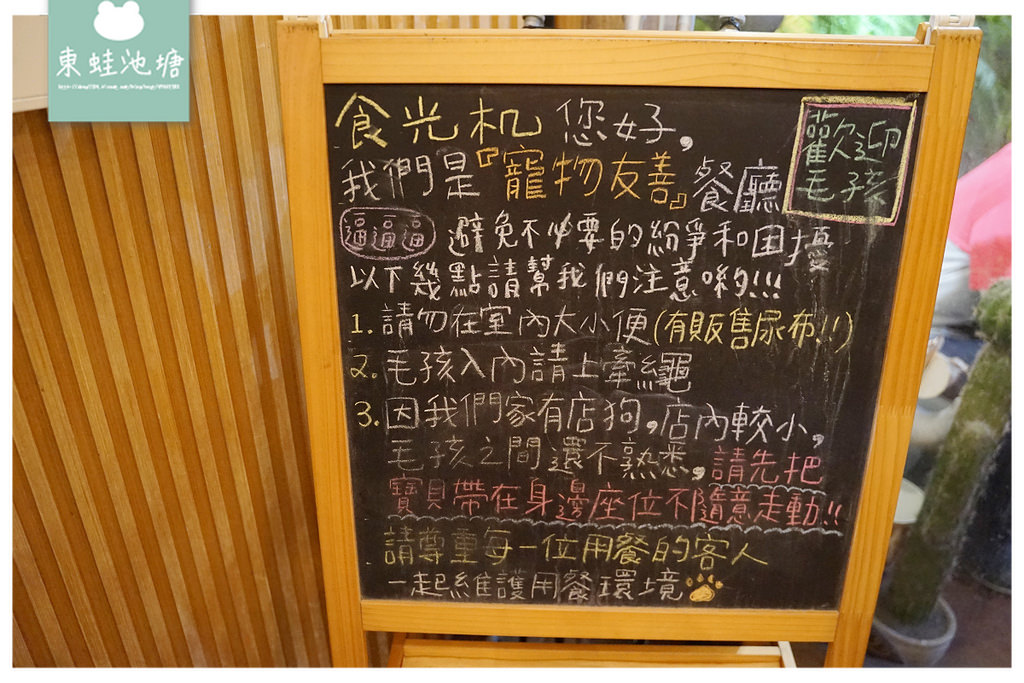 東蛙池塘
食光机 您好,
我們是『寵物友善』餐廳
歡迎
毛孩
逼逼逼 避免不必要的紛爭和困擾
以下幾點請幫我們注意喲!!!
1. 請勿在室內大小便(有販售尿布!!)
2. 毛孩入內請上牽繩
3. 因我們家有店狗,店內較小,
毛孩之間還不熟悉,請先把
寶貝帶在身邊座位不隨意走動!!
請尊重每一位用餐的客人
一起維護用餐環境